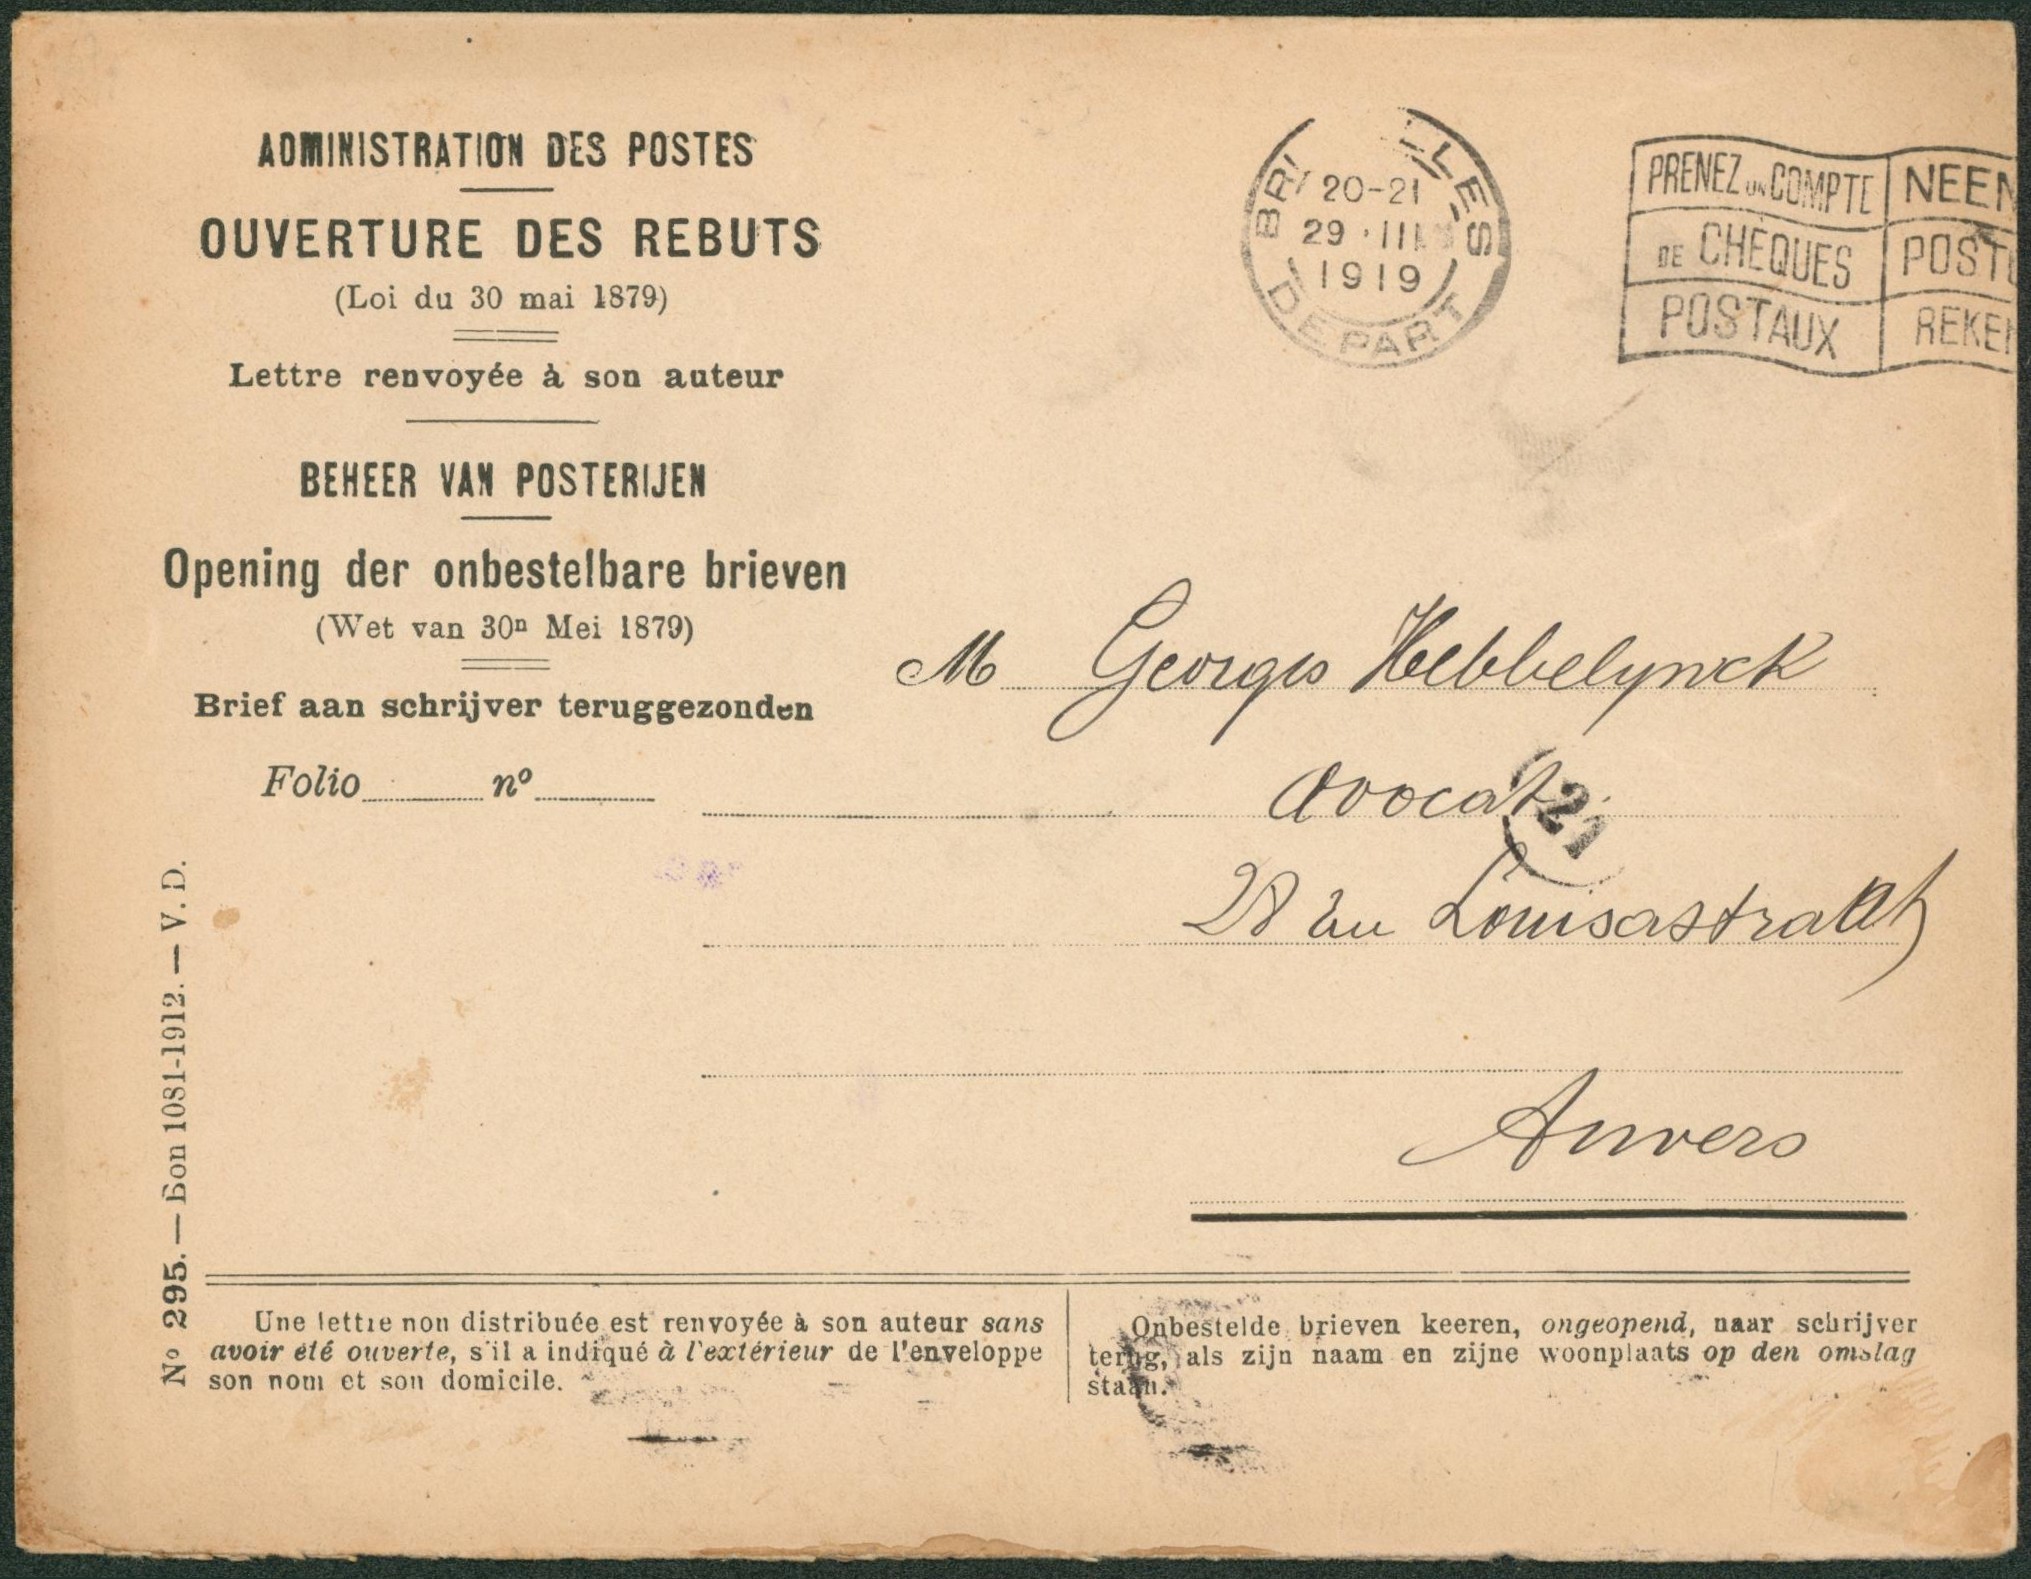 ADMINISTRATION DES POSTES
OUVERTURE DES REBUTS
(Loi du 30 mai 1879)
Lettre renvoyée à son auteur
BEHEER VAN POSTERIJEN
Opening der onbestelbare brieven
(Wet van 30n Mei 1879)
Brief aan schrijver teruggezonden
Folio nº
Nº 295. — Bon 1081-1912. — V. D.
BR LLES
20-21
29 · III
1919
DEPART
PRENEZ UN COMPTE
DE CHÈQUES
POSTAUX
NEEN
POSTC
REKEN
M Georges Hebbelynck
avocat
21
28 Louisastraat
Anvers
Une lettre non distribuée est renvoyée à son auteur sans
avoir été ouverte, s'il a indiqué à l'extérieur de l'enveloppe
son nom et son domicile.
Onbestelde brieven keeren, ongeopend, naar schrijver
terug, als zijn naam en zijne woonplaats op den omslag
staan.